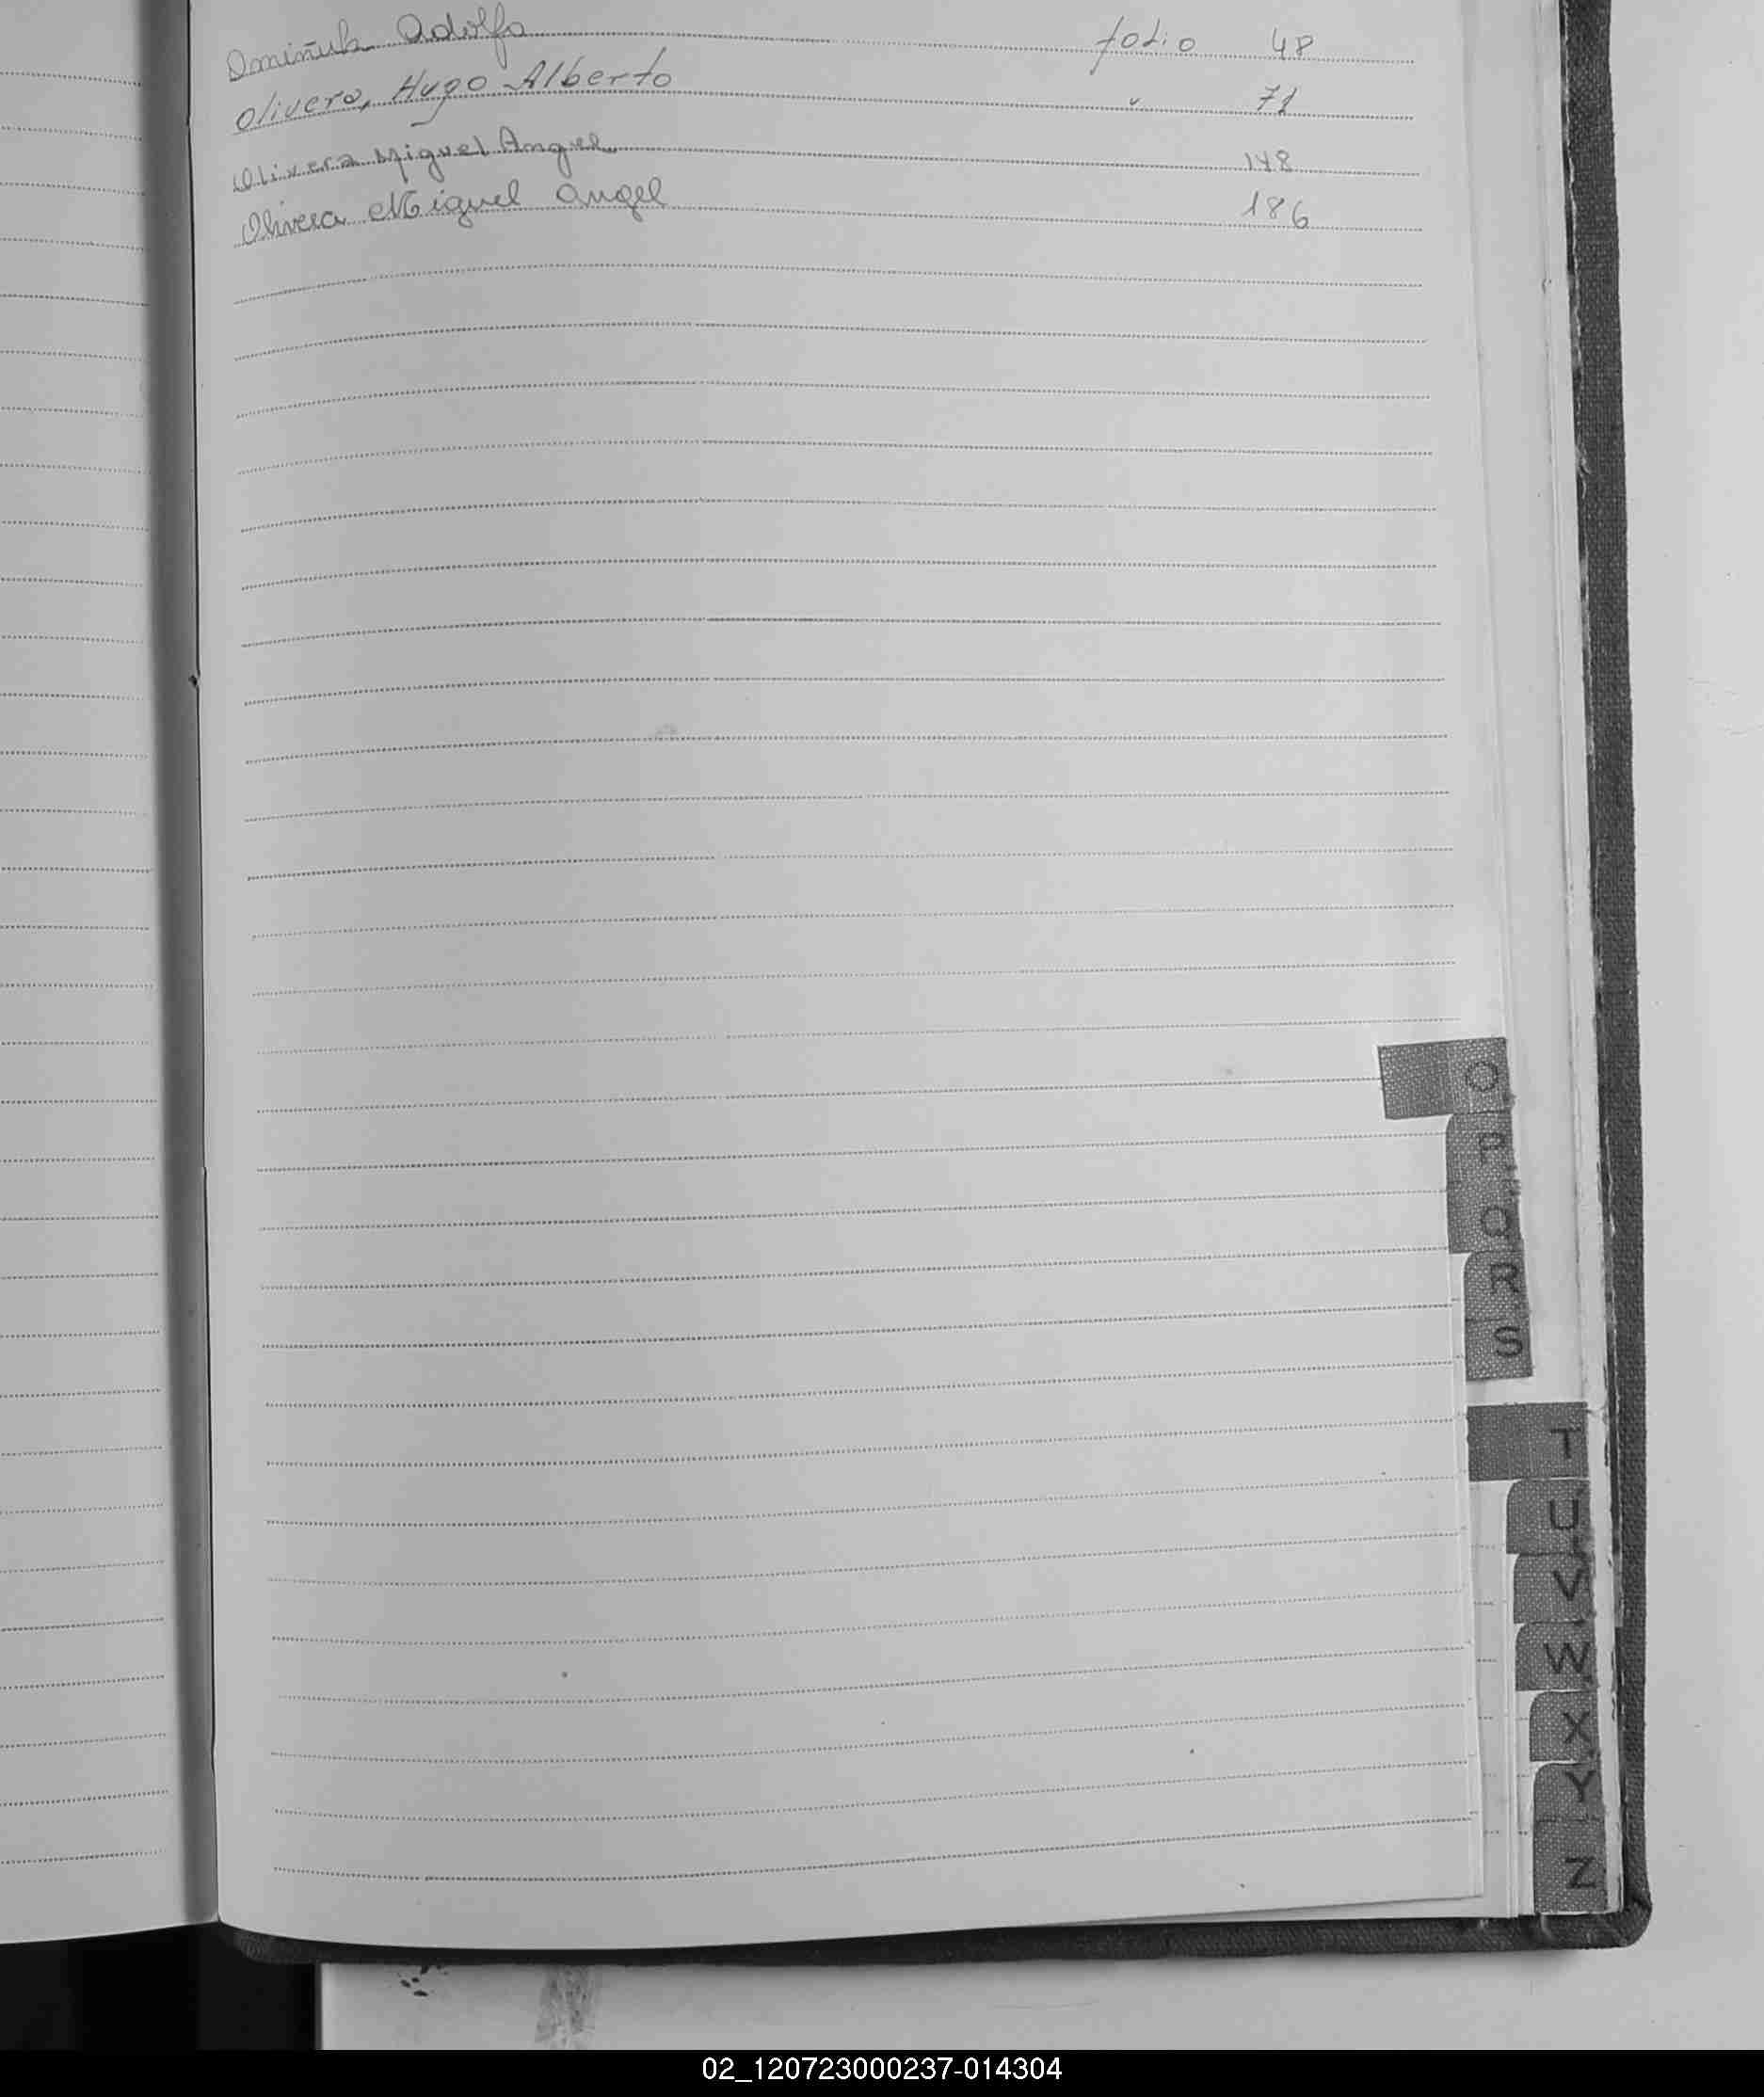 Ominuk Adolfo folio 48
Olivera, Hugo Alberto " 71
Olivera Miguel Angel 148
Olivera Miguel Angel 186
O
P
Q
R
S
T
U
V
W
X
Y
Z
02_120723000237-014304